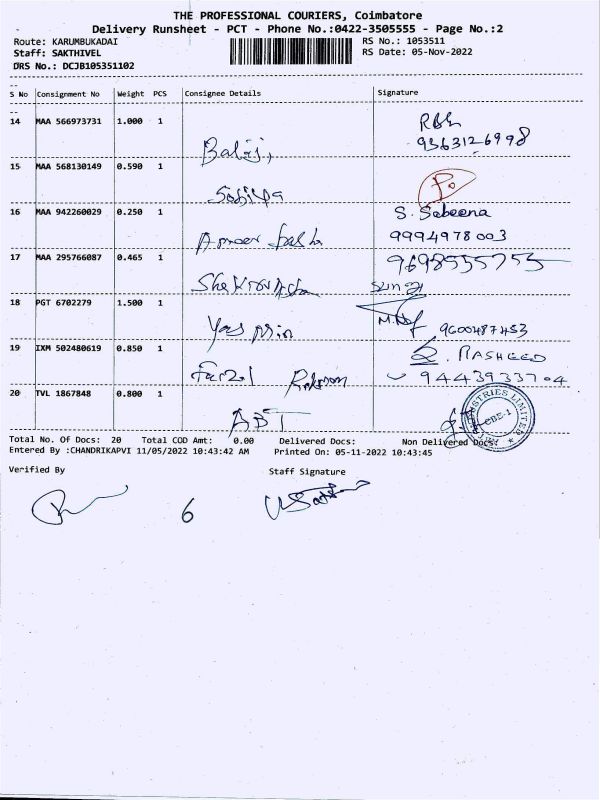 THE PROFESSIONAL COURIERS, Coimbatore
Delivery Runsheet - PCT - Phone No.:0422-3505555 - Page No.:2
Route: KARUMBUKADAI RS No.: 1053511
Staff: SAKTHIVEL RS Date: 05-Nov-2022
DRS No.: DCJB105351102
S No Consignment No Weight PCS Consignee Details Signature
14 MAA 566973731 1.000 1
9363126998
Balaji,
15 MAA 568130149 0.590 1
Sofiya
16 MAA 942260029 0.250 1 S. Sabeena
Ameer basha 9994978003
17 MAA 295766087 0.465 1 9698555755
18 PGT 6702279 1.500 1
Yasmin 9600487453
19 IXM 502480619 0.850 1 RASHEED
Rahman 9443933704
20 TVL 1867848 0.800 1
ABT
CBE-1
Total No. Of Docs: 20 Total COD Amt: 0.00 Delivered Docs: Non Delivered Docs:
Entered By :CHANDRIKAPVI 11/05/2022 10:43:42 AM Printed On: 05-11-2022 10:43:45
Verified By Staff Signature
6